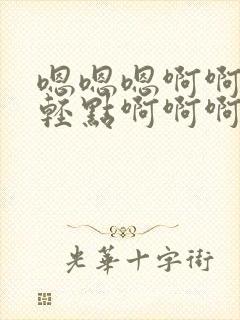 嗯嗯嗯啊啊
輕點啊啊啊
光華十字街